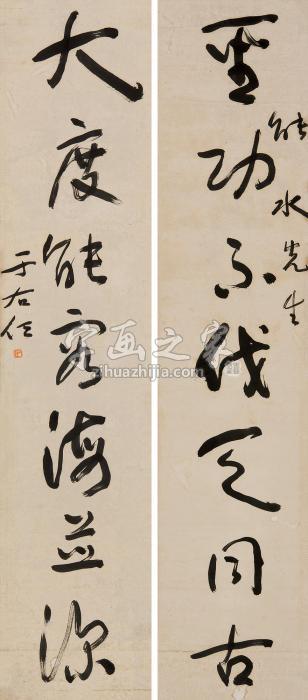 功不伐天同古
能水先生
大度能容海並深
于右任
字画之家
zihuazhijia.com